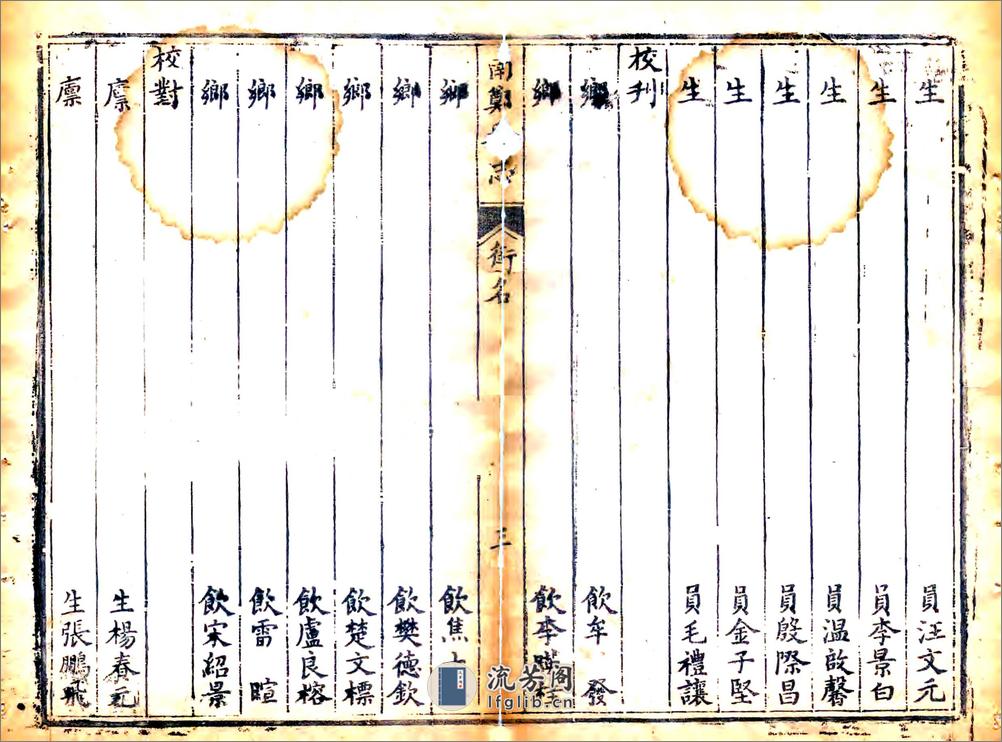 生員汪文元
生員李景白
生員温啟馨
生員殷際昌
生員金子堅
生員毛禮讓
校刋
鄉飲牟發
鄉飲李
南鄭 志
銜名
三
鄉飲焦
鄉飲樊德欽
鄉飲楚文標
鄉飲盧良榕
鄉飲雷暄
鄉飲宋紹景
校對
廪生楊春元
廪生張鵬飛
流芳阁
lfglib.cn